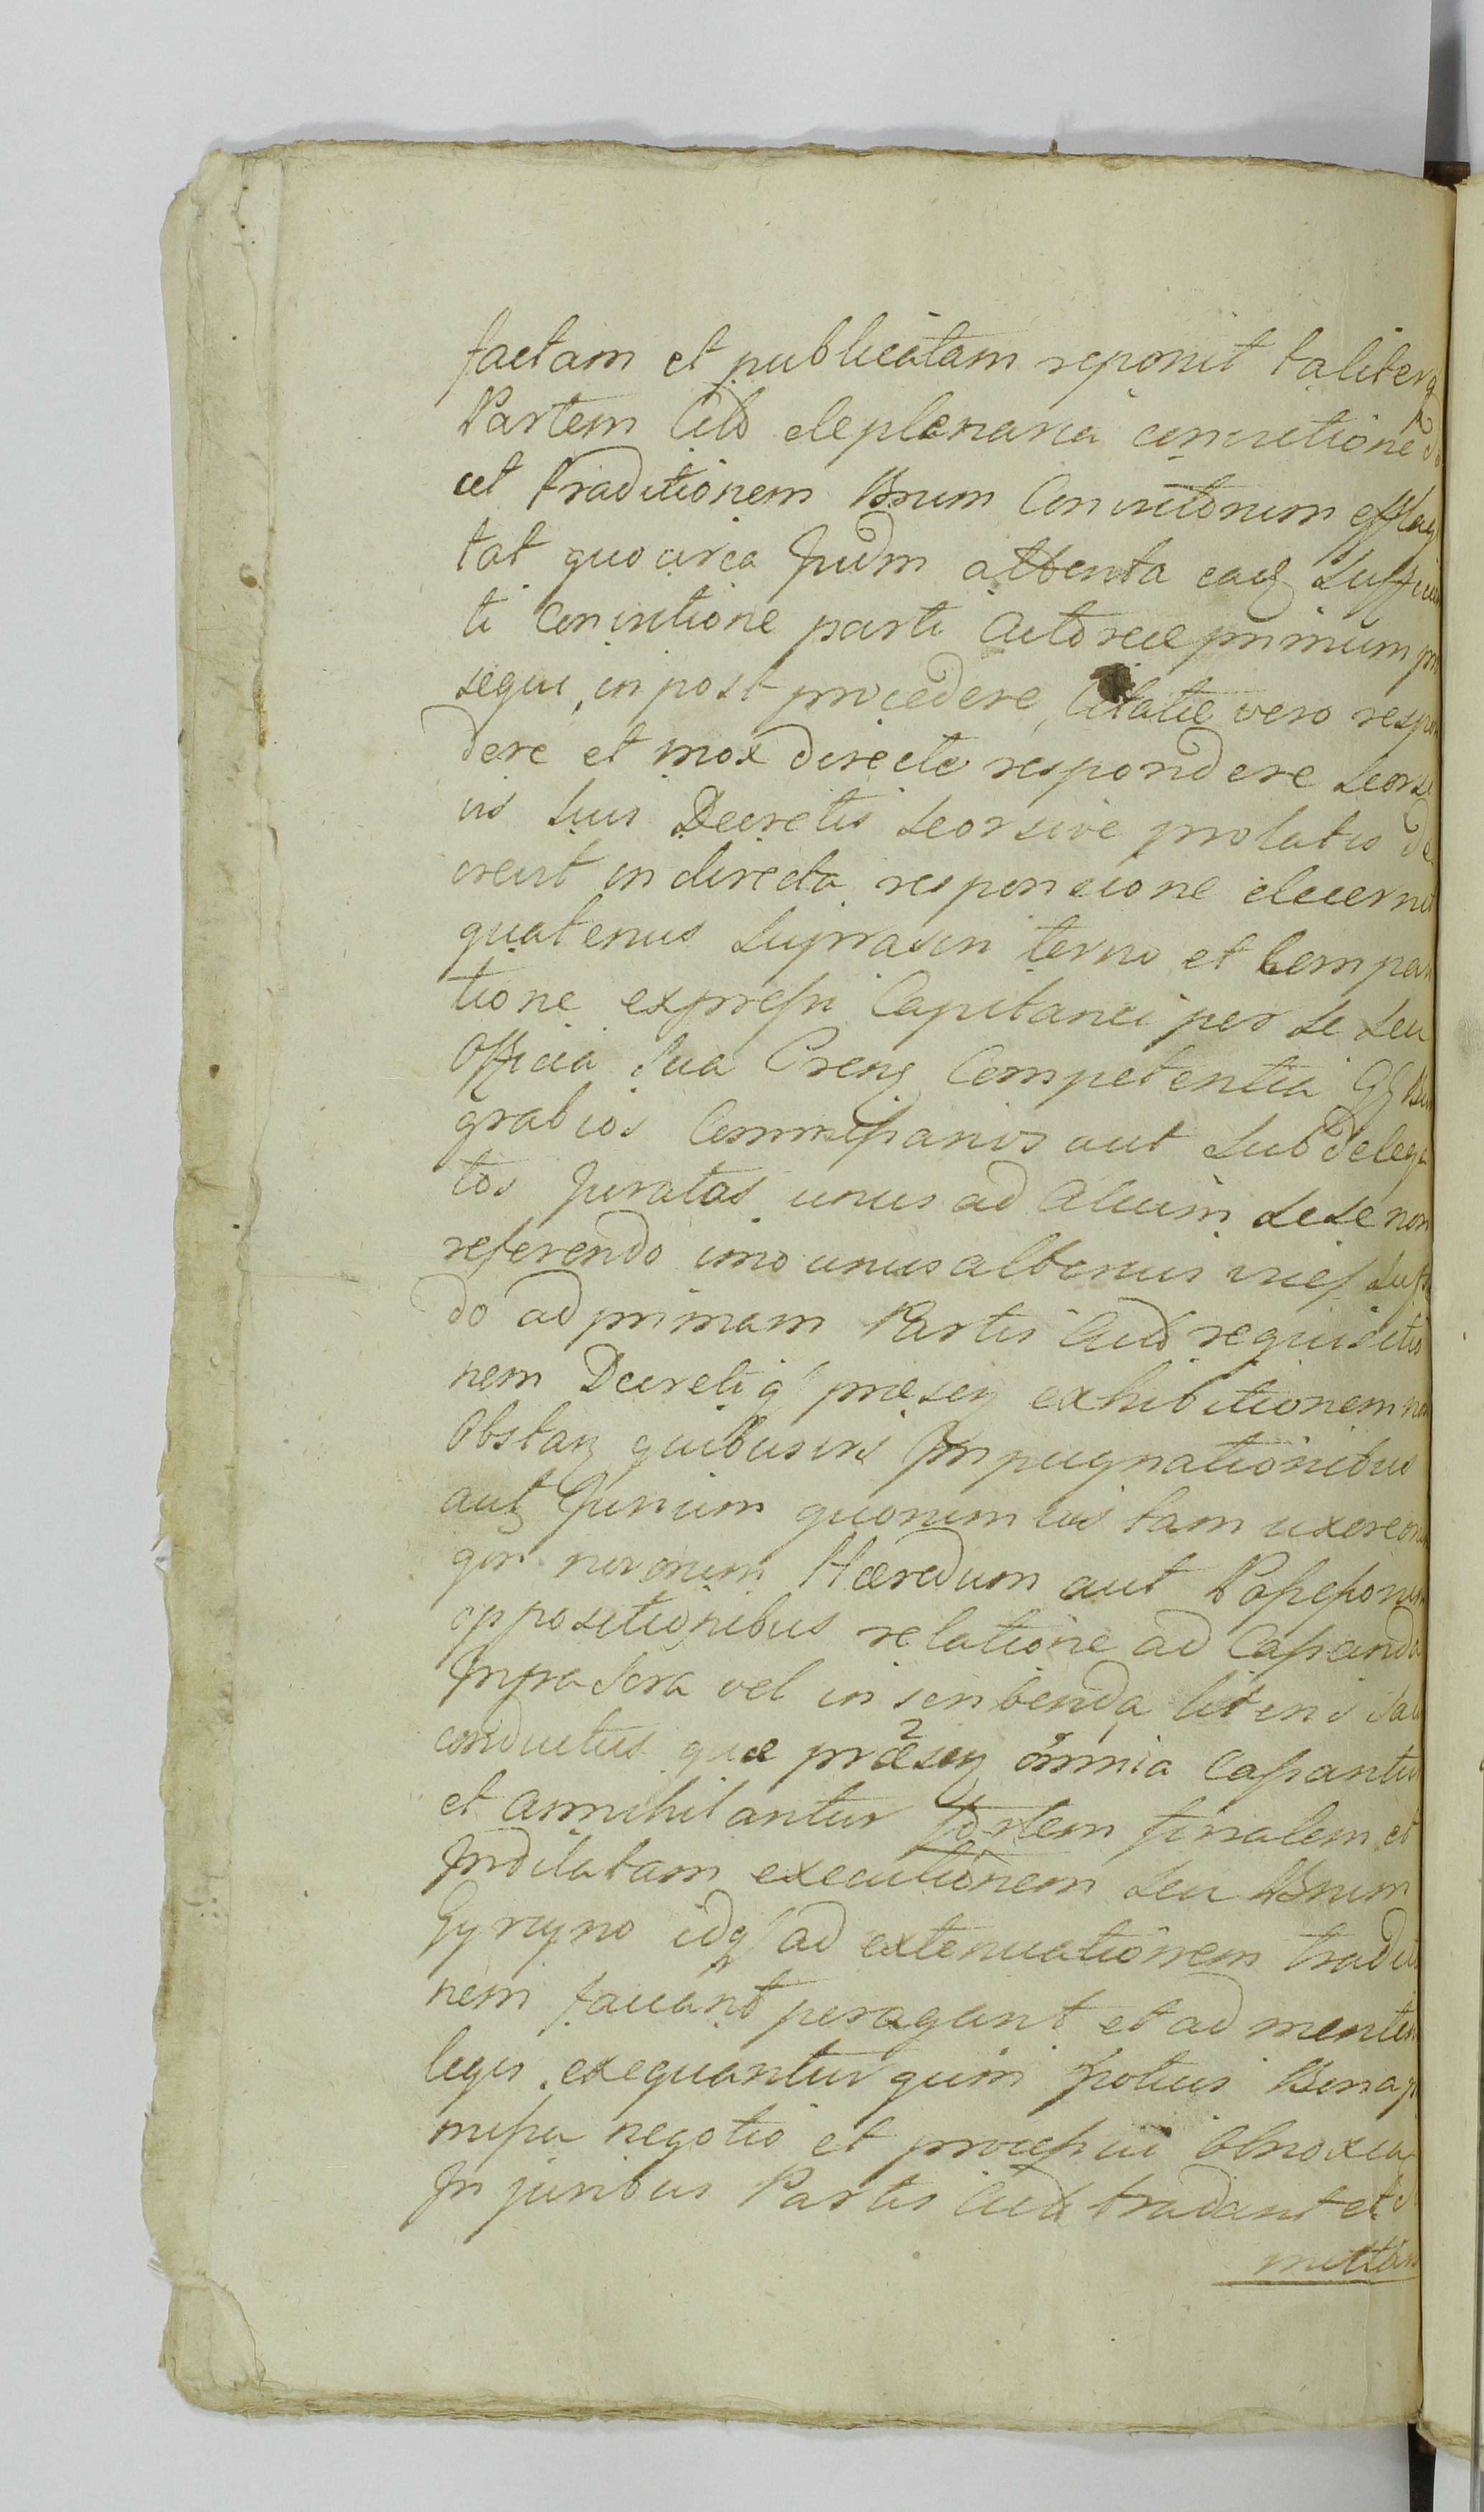 factam et publicatam reponit taliter
Partem Citd de plenaria convictione
cet traditionem Bnum Convictorum efflag
tat quocirca Judm attenta eaq sufficien
ti convictione parti Actoreae primum pro
sequi, in post procedere, Citatae vero respon
dere et mox directe respondere seorsi
vis suis Decretis seorsive prolatis de
crevit in directa responcione decernit
quatenus suprascri terno et Compari
tione expressi Capitanei per se seu
Officia sua Preng Competentia GG Bur
grabios Commissarios aut Subdelega
tos Juratos unus ad alium sese non
referendo imo unus alterius vices sup
do ad primam Partis Actd requisitio
nem Decretiq praesen exhibitionem non
Obstan quibusvis Impugnationibus
aut Jurium quorumvis tam uxoreorum
qm minorum Haeredum aut Possessorum
oppositionibus relatione ad Cassanda
Infrascra vel inscribenda literis sal
conductus quae praesen omnia Cassantur
et annihilantur finalem et
Indilatam executionem seu Bnum
idq ad extenuationem traditio
nem faciant peragant et ad mentem
legis exequantur quin potius Bona
missa negotio et processui obnoxia
In juribus Partis Actd tradant et
mittan